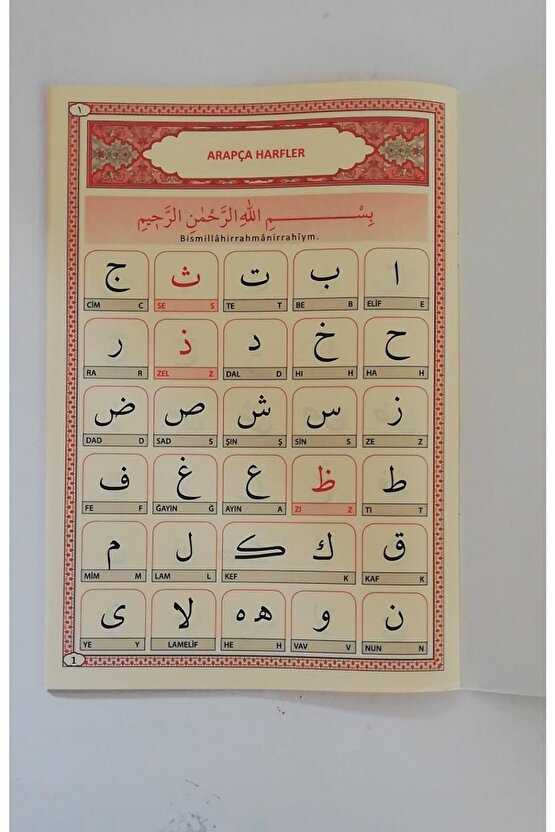 ١
ARAPÇA HARFLER
بِسْمِ اللهِ الرَّحْمٰنِ الرَّحِيمِ
Bismillâhirrahmânirrahîym.
ا ب ت ث ج
ELİF E BE B TE T SE S CİM C
ح خ د ذ ر
HA H HI H DAL D ZEL Z RA R
ز س ش ص ض
ZE Z SİN S ŞIN Ş SAD S DAD D
ط ظ ع غ ف
TI T ZI Z AYIN A ĞAYIN Ğ FE F
ق ك ک ل م
KAF K KEF K LAM L MİM M
ن و ه ه لا ى
NUN N VAV V HE H LAMELİF YE Y
1